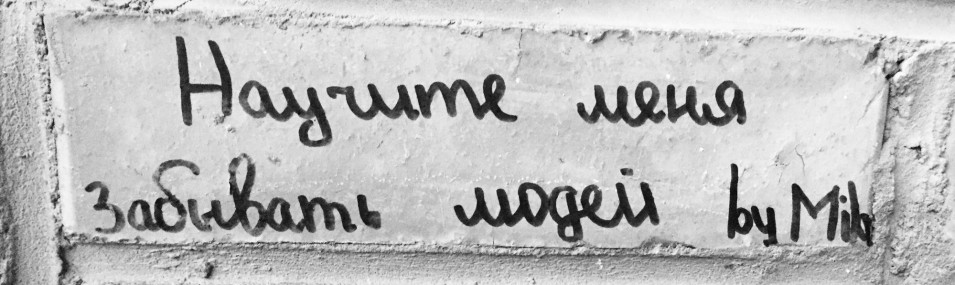 Научите меня
забывать людей by Mila